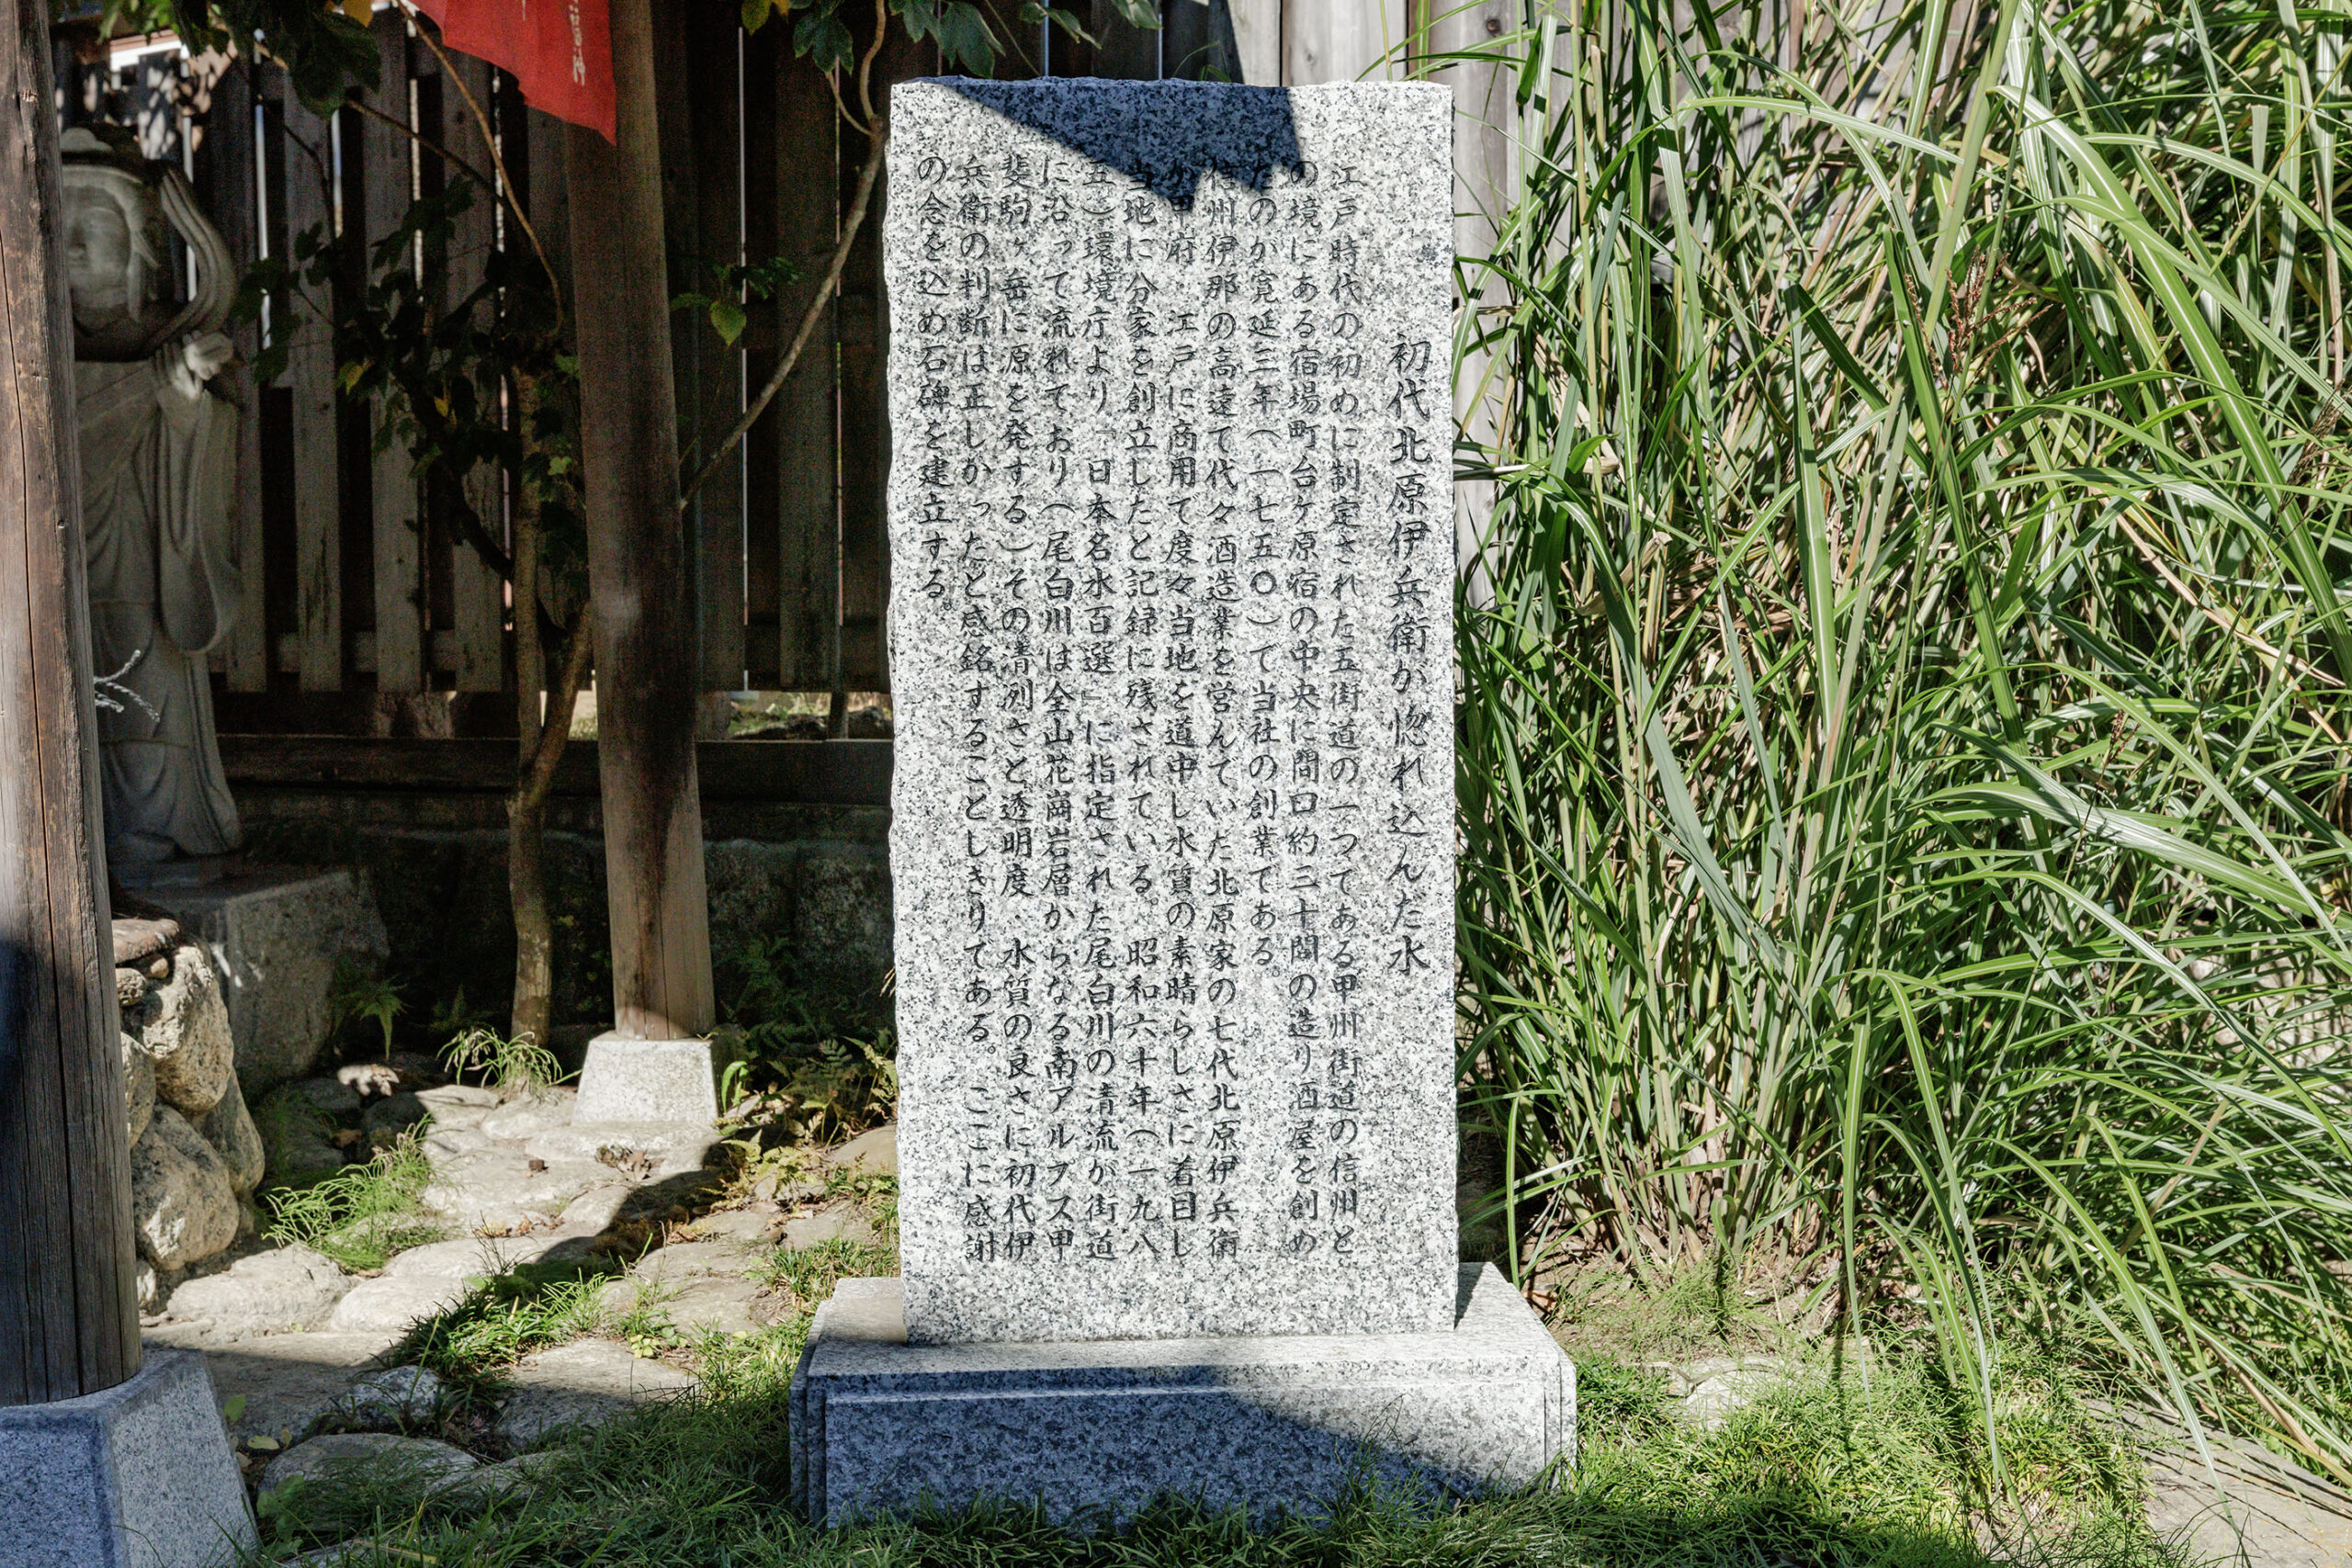 初代北原伊兵衛が惚れ込んだ水
江戸時代の初めに制定された五街道の一つである甲州街道の信州と
の境にある宿場町台ケ原宿の中央に間口約三十間の造り酒屋を創め
たのが寛延三年（一七五〇）で当社の創業である。
信州伊那の高遠で代々酒造業を営んでいた北原家の七代北原伊兵衛
府、江戸に商用で度々当地を道中し水質の素晴らしさに着目し
当地に分家を創立したと記録に残されている。昭和六十年（一九八
五）環境庁より「日本名水百選」に指定された尾白川の清流が街道
に沿って流れており（尾白川は全山花崗岩層からなる南アルプス甲
斐駒ヶ岳に源を発する）その清冽さと透明度、水質の良さに初代伊
兵衛の判断は正しかったと感銘することしきりである。ここに感謝
の念を込め石碑を建立する。